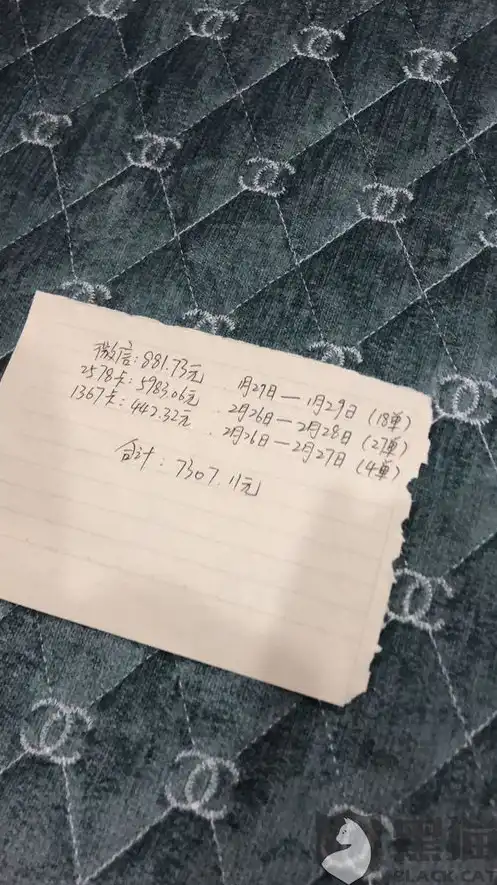 微信:881.73元 1月27日—1月29日(18单)
2578卡:5983.06元 2月26日—2月28日(27单)
1367卡:442.32元 2月26日—2月27日(4单)
合计:7307.11元
黑猫
BLACK CAT